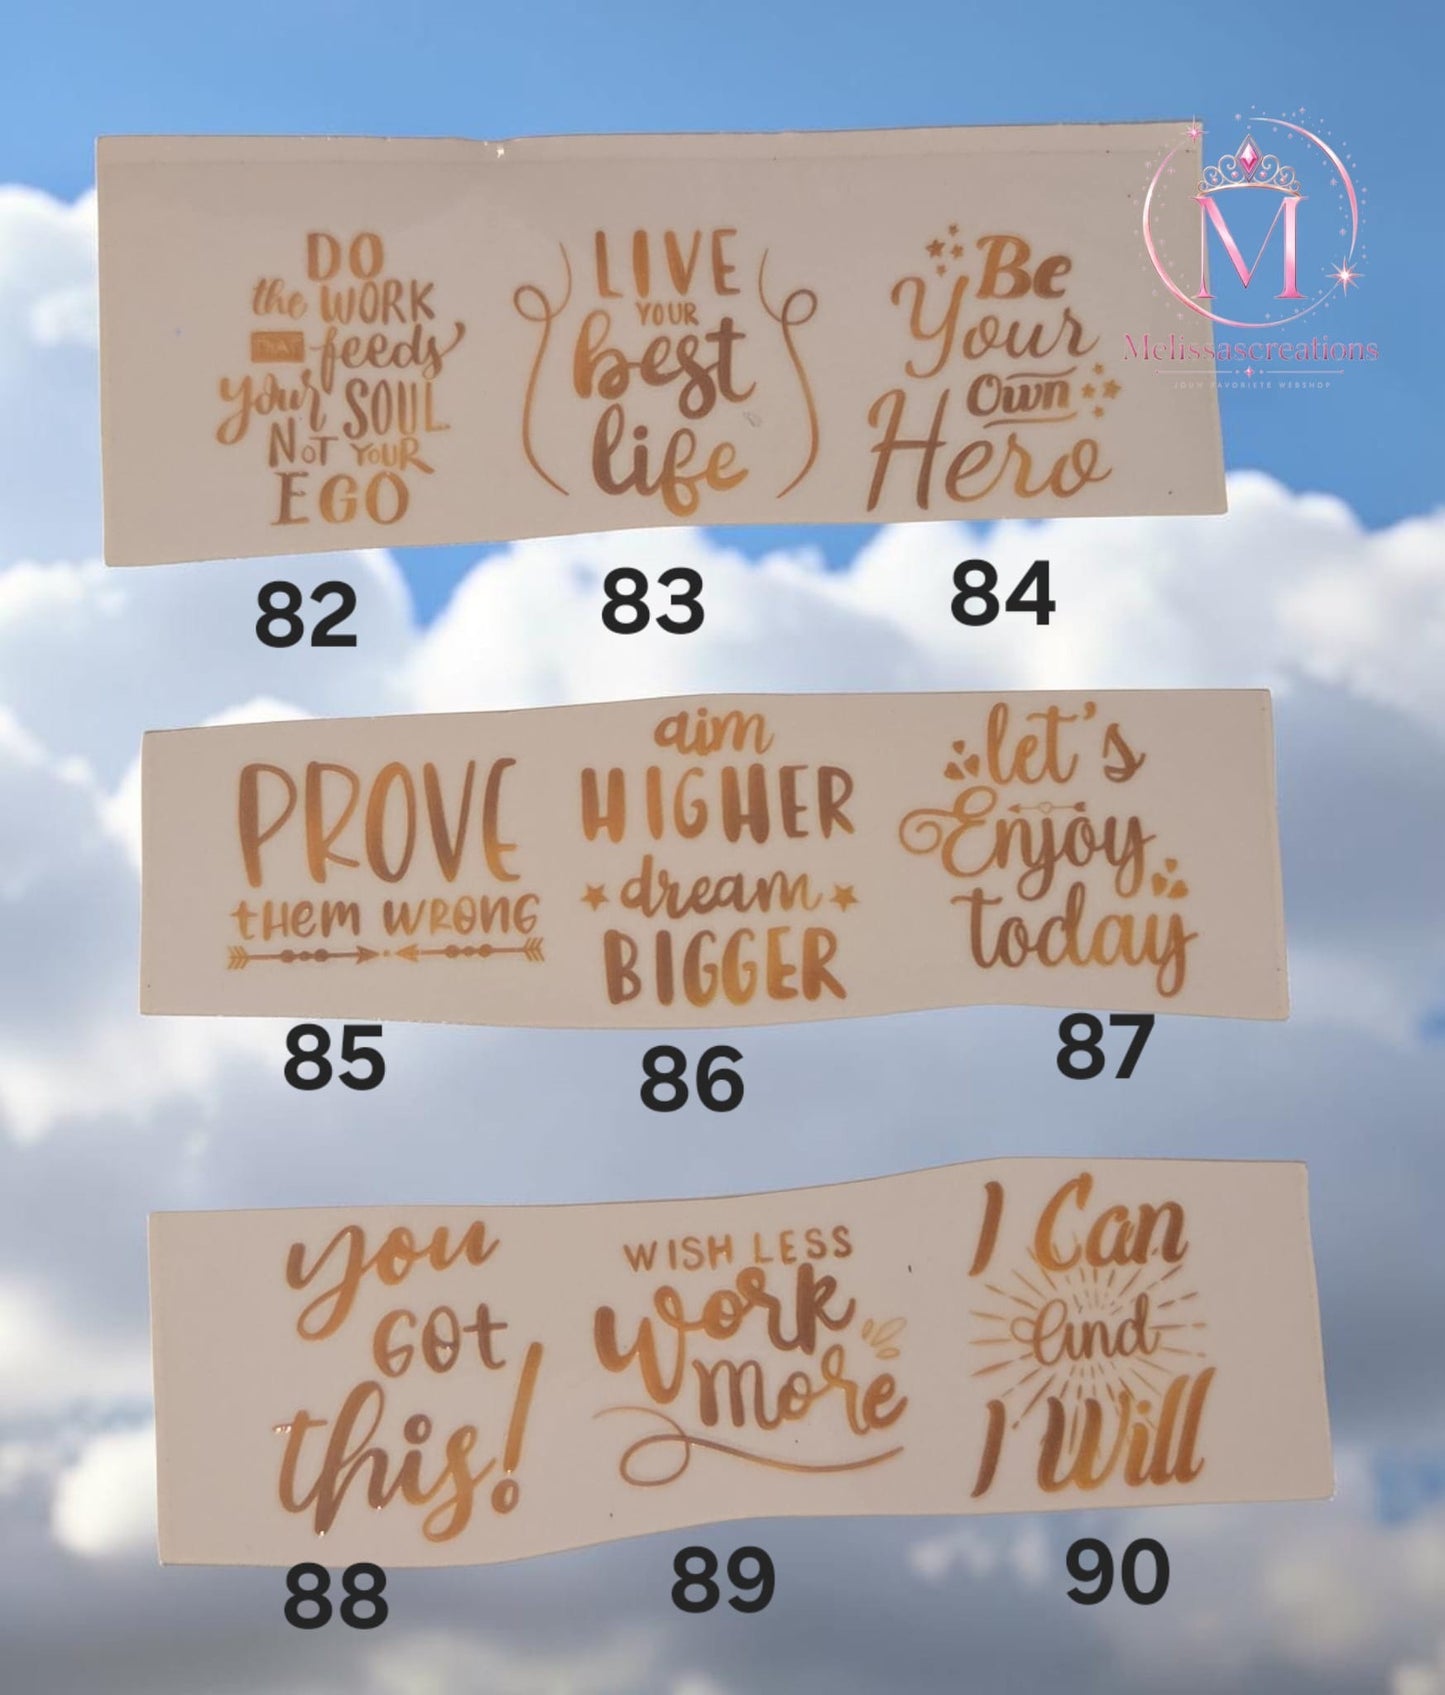 DO
the WORK
THAT feeds
your SOUL
NOT YOUR
EGO
LIVE
YOUR
best
life
Be
Your
Own
Hero
M
Melissascreations
JOUW FAVORIETE WEBSHOP
82
83
84
PROVE
them WRONG
aim
HIGHER
dream
BIGGER
let's
Enjoy
today
85
86
87
you
GOt
this!
WISH LESS
work
more
I Can
And
I Will
88
89
90